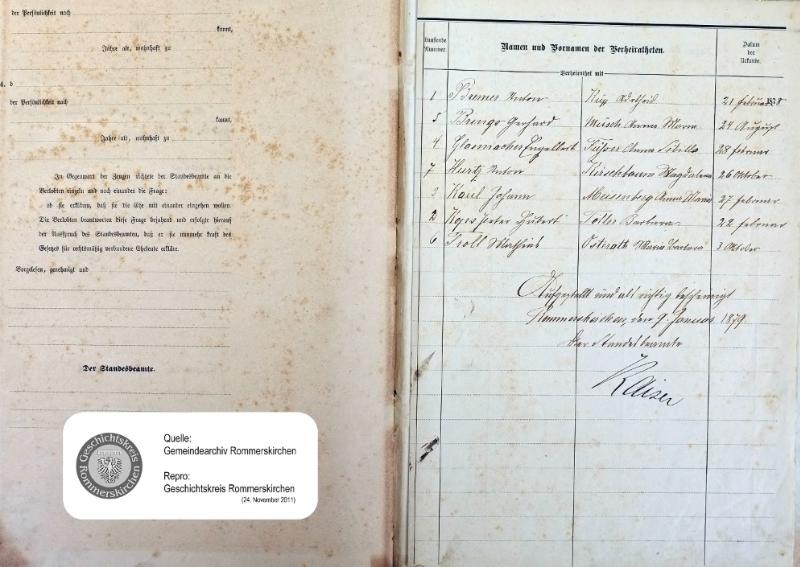 der Persönlichkeit nach
kannt,
Jahre alt, wohnhaft zu
4. d
der Persönlichkeit nach
kannt,
Jahre alt, wohnhaft zu
In Gegenwart der Zeugen richtete der Standesbeamte an die
Verlobten einzeln und nach einander die Frage:
ob sie erklären, daß sie die Ehe mit einander eingehen wollen.
Die Verlobten beantworteten diese Frage bejahend und erfolgte hierauf
der Ausspruch des Standesbeamten, daß er sie nunmehr kraft des
Gesetzes für rechtmäßig verbundene Eheleute erkläre.
Vorgelesen, genehmigt und
Der Standesbeamte.
Geschichtskreis
Rommerskirchen
Quelle:
Gemeindearchiv Rommerskirchen
Repro:
Geschichtskreis Rommerskirchen
(24. November 2011)
Laufende Nummer.
Namen und Vornamen der Verheiratheten.
Datum der Urkunde.
Verheirathet mit
1 Bremer Anton Adelheid 21 februar 1878
5 Gerhard Anna Maria 24 August
4 Glasmacher Engelbert Anna Sibilla 28 februar
7 Hurtz Anton Kirschbaum Magdalena 26 Oktober
3 Kaul Johann Meisenberg Anna Maria 27 februar
2 Peter Hubert Barbara 22 februar
6 Troll Mathias Osterath Maria Barbara 3 Oktober
Aufgestellt und als richtig bescheinigt
Rommerskirchen, den 9. Januar 1879
Der Standesbeamte
Kaiser